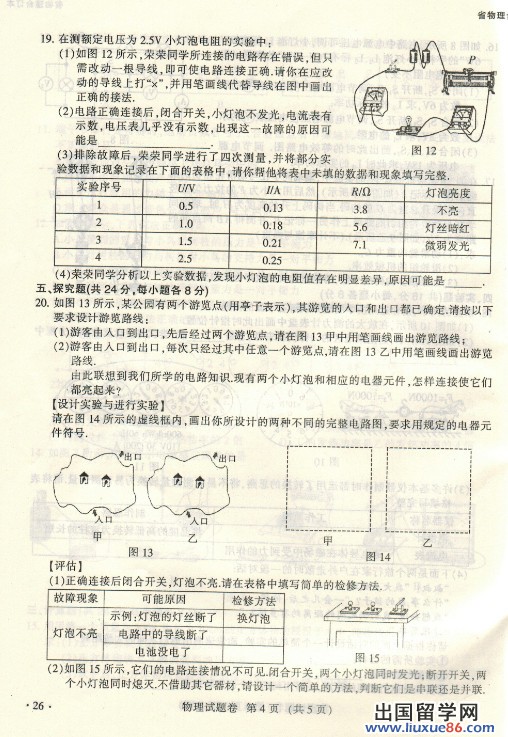 省物理
19. 在测额定电压为 2.5V 小灯泡电阻的实验中:
(1)如图 12 所示,荣荣同学所连接的电路存在错误,但只
需改动一根导线,即可使电路连接正确.请你在应改
动的导线上打“×”,并用笔画线代替导线在图中画出
正确的接法.
(2)电路正确连接后,闭合开关,小灯泡不发光,电流表有
示数,电压表几乎没有示数,出现这一故障的原因可
能是
P
图 12
(3)排除故障后,荣荣同学进行了四次测量,并将部分实
验数据和现象记录在下面的表格中,请你帮他将表中未填的数据和现象填写完整.
实验序号 U/V I/A R/Ω 灯泡亮度
1 0.5 0.13 3.8 不亮
2 1.0 0.18 5.6 灯丝暗红
3 1.5 0.21 7.1 微弱发光
4 2.5 0.25
(4)荣荣同学分析以上实验数据,发现小灯泡的电阻值存在明显差异,原因可能是
五、探究题(共 24 分,每小题各 8 分)
20. 如图 13 所示,某公园有两个游览点(用亭子表示),其游览的入口和出口都已确定.请按以下
要求设计游览路线:
(1)游客由入口到出口,先后经过两个游览点,请在图 13 甲中用笔画线画出游览路线;
(2)游客由入口到出口,每次只经过其中任意一个游览点,请在图 13 乙中用笔画线画出游览
路线.
由此联想到我们所学的电路知识.现有两个小灯泡和相应的电器元件,怎样连接使它们
都亮起来?
【设计实验与进行实验】
请在图 14 所示的虚线框内,画出你所设计的两种不同的完整电路图,要求用规定的电器元
件符号.
出口 出口
入口 入口
甲 乙
图 13
甲 乙
图 14
【评估】
(1)正确连接后闭合开关,灯泡不亮.请在表格中填写简单的检修方法.
故障现象 可能原因 检修方法
灯泡不亮 示例:灯泡的灯丝断了 换灯泡
电路中的导线断了
电池没电了
图 15
(2)如图 15 所示,它们的电路连接情况不可见.闭合开关,两个小灯泡同时发光;断开开关,两
个小灯泡同时熄灭.不借助其它器材,请设计一个简单的方法,判断它们是串联还是并联.
· 26 · 物理试题卷 第 4 页 (共 5 页)
出国留学网
www.liuxue86.com